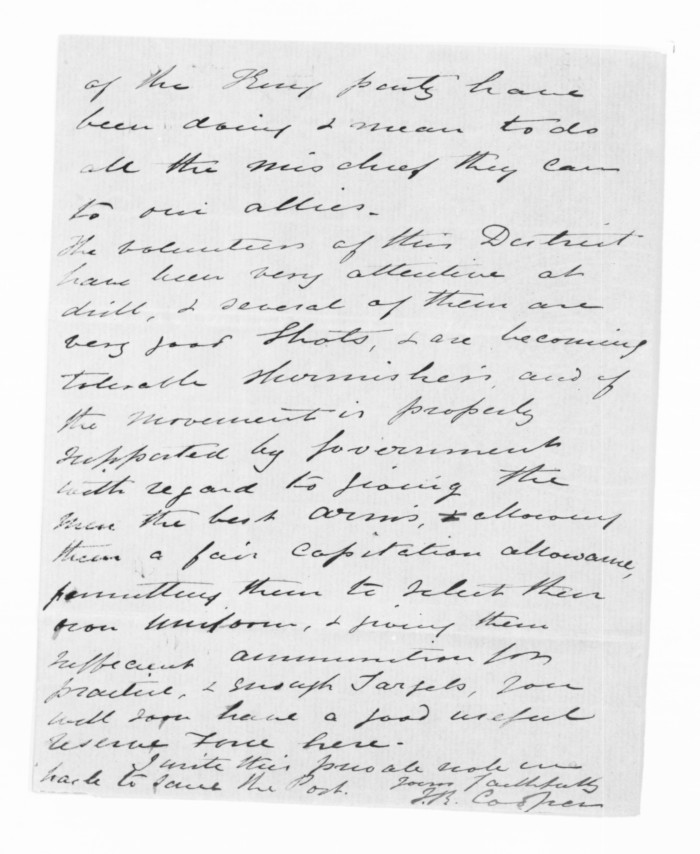 of the King party have
been doing & mean to do
all the mischief they can
to our allies.
The volunteers of this District
have been very attentive at
drill, & several of them are
very good Shots, & are becoming
tolerable skirmishers, and if
the movement is properly
supported by Government
with regard to giving the
men the best arms, & allowing
them a fair capitation allowance,
permitting them to select their
own uniform, & giving them
sufficient ammunition for
practice, & enough Targets, you
will soon have a good useful
reserve Force here.
I write this private note in
haste to save the Post.
Yours Faithfully
Cooper